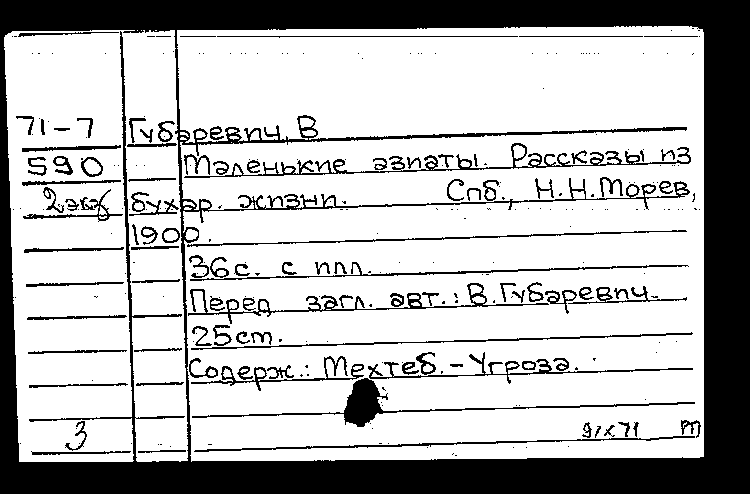 71-7 Губаревич, В
590 Маленькие азиаты. Рассказы из
2 экз бухар. жизни. Спб., Н.Н.Морев,
1900.
36с. с илл.
Перед загл. авт.: В.Губаревич.
25ст.
Содерж.: Мехтеб. - Угроза.
3 9/X 71 РП